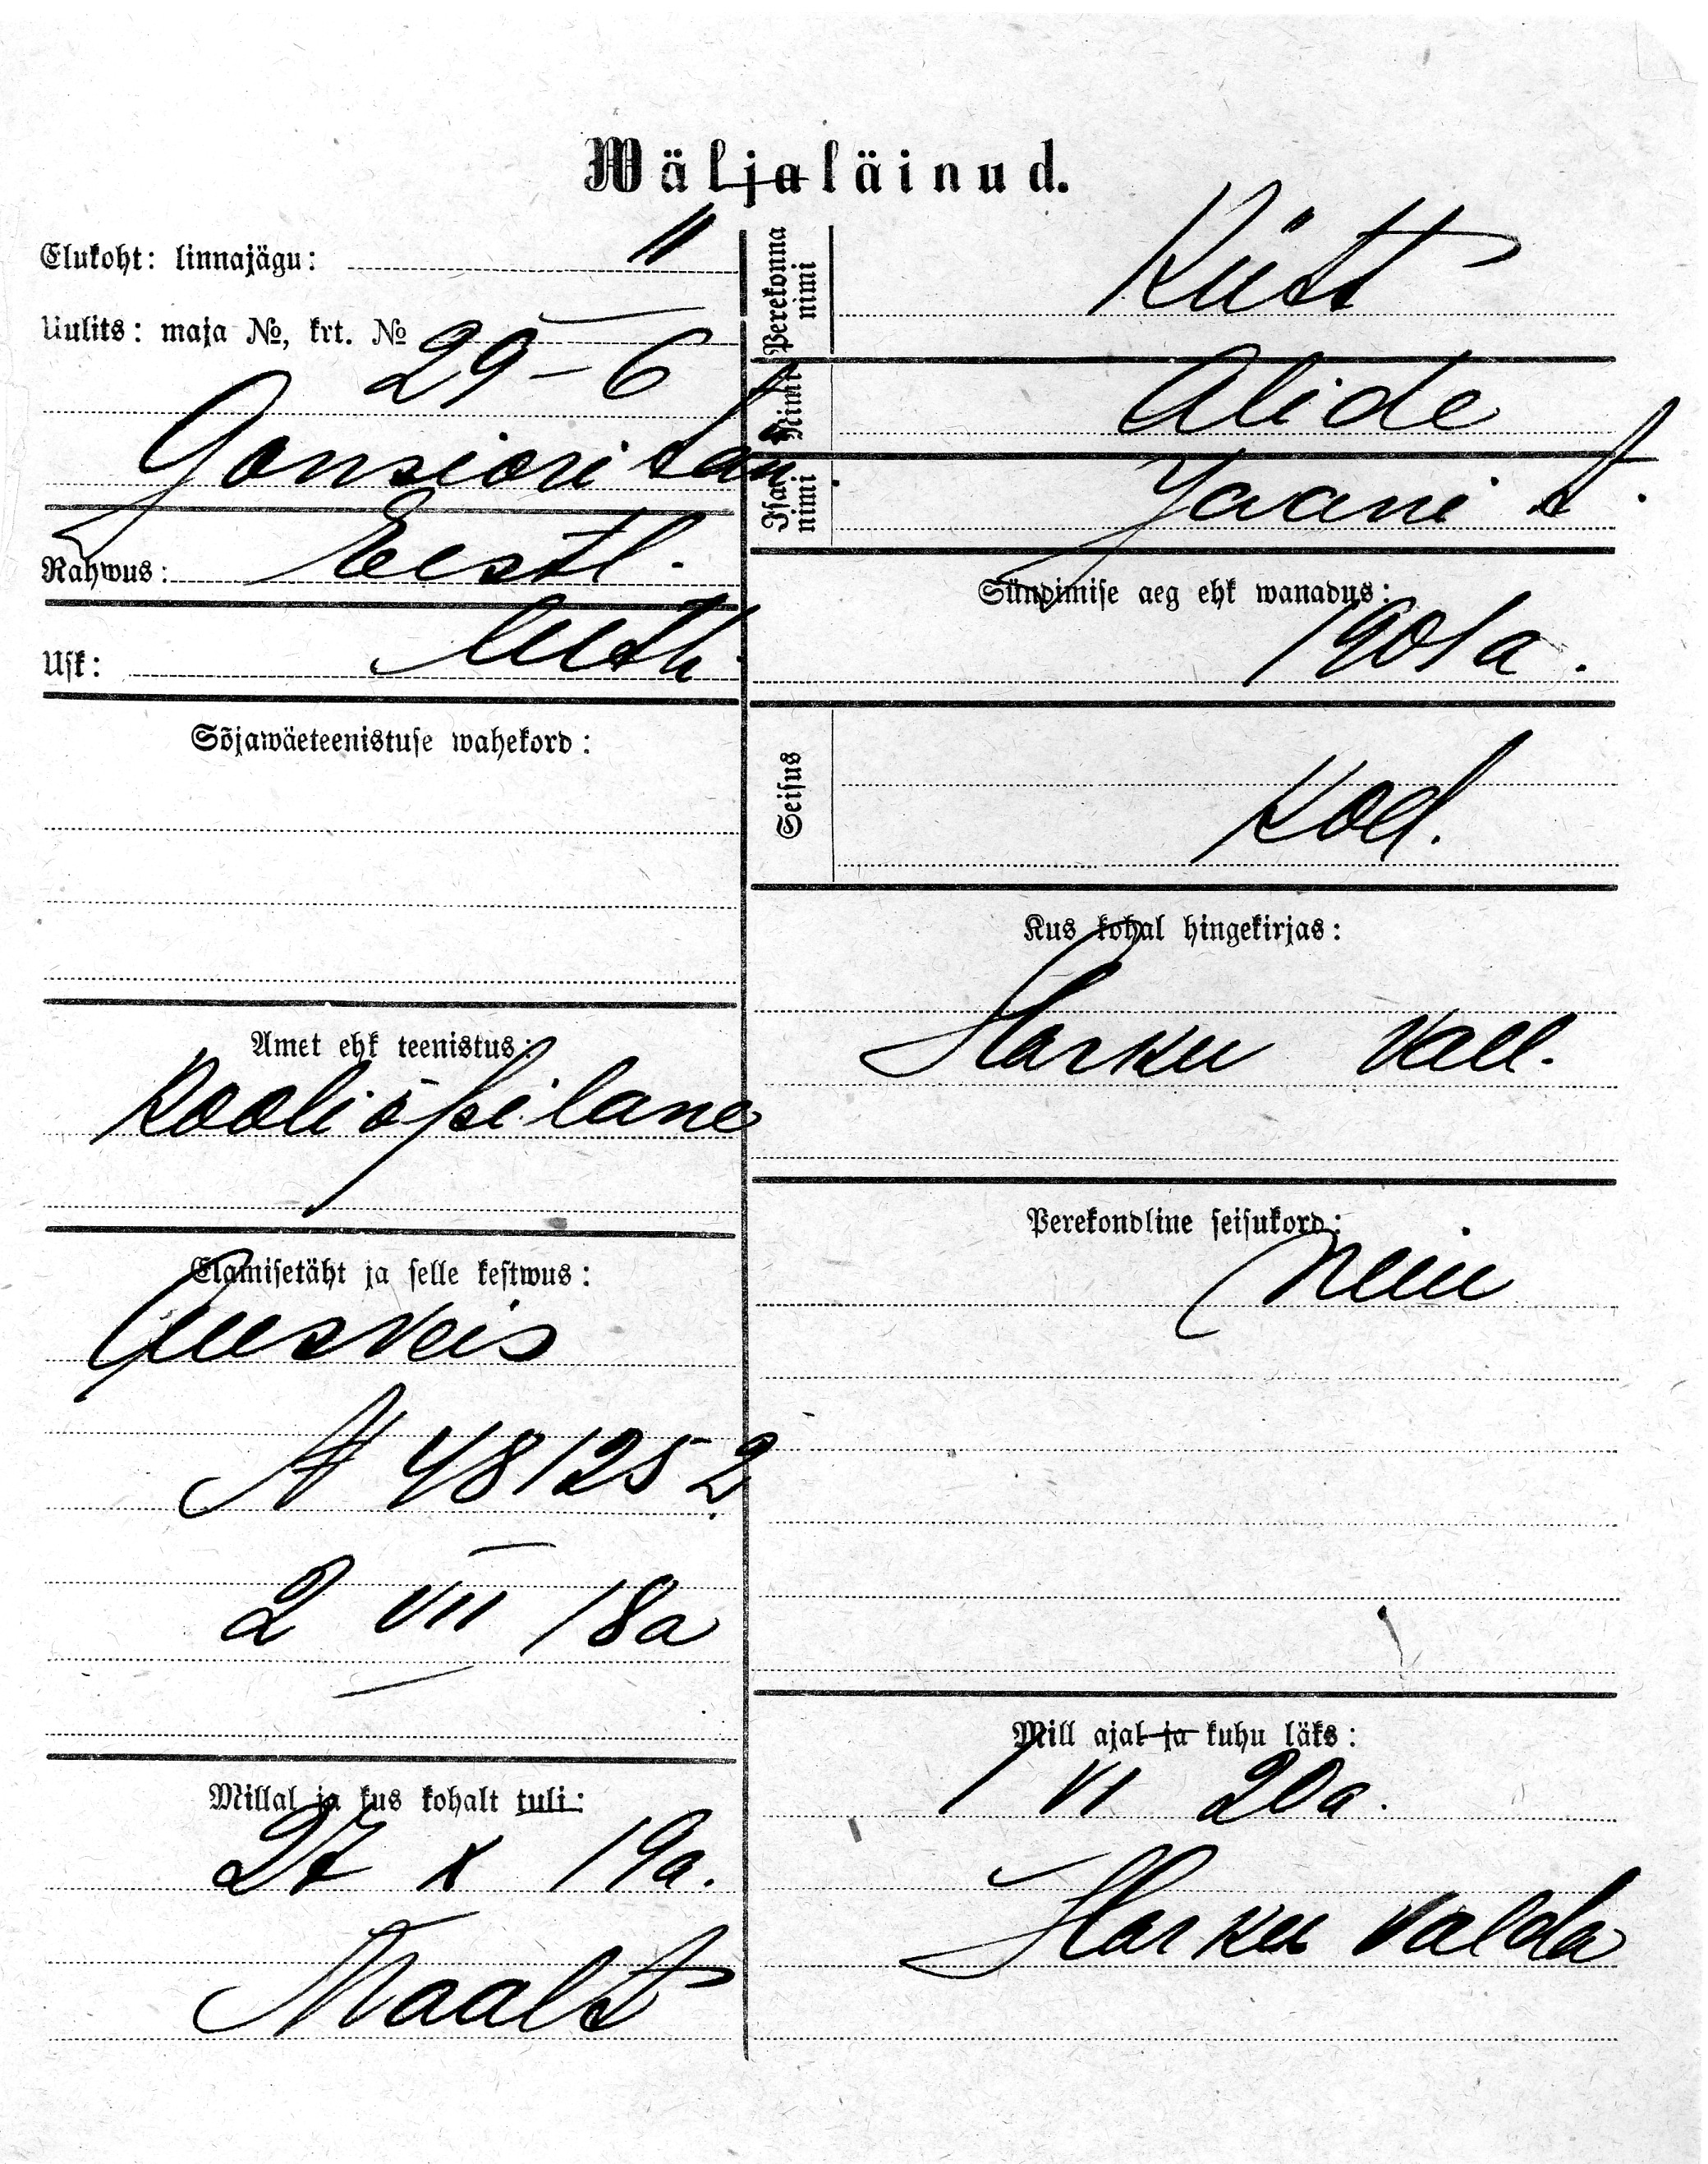 Wäljaläinud.
Elukoht: linnajägu: II
Uulits: maja №, krt. № 29-6
Gonsiori tän.
Rahwus: Eestl.
Usk: luth.
Sõjawäeteenistuse wahekord:
Amet ehk teenistus:
Kooliõpilane
Elamisetäht ja selle kestwus:
Ausveis
A 481252
2 VII 18a
Millal ja kus kohalt tuli:
27 X 19a.
Maalt
Perekonna nimi
Kütt
Nimi
Alide
Isa nimi
Jaani t.
Sündimise aeg ehk wanadus:
1901a.
Seisus
Kod.
Kus kohal hingekirjas:
Harku vall.
Perekondline seisukord:
Neiu
Mill ajal ja kuhu läks:
1 VI 20a.
Harku valda